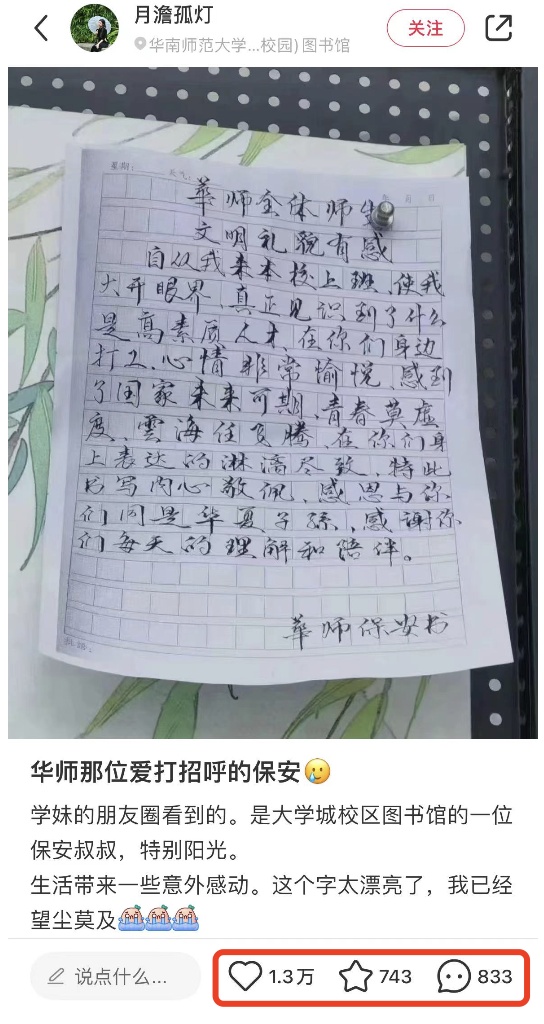 月澹孤灯
华南师范大学...校园) 图书馆
关注
星期: 天气:
年 月 日
華师全体师生
文明礼貌有感
自从我来本校上班、使我
大开眼界、真正见识到了什么
是高素质人才、在你们身边
打工、心情非常愉悦、感到
了国家未来可期、青春莫虚
度、雲海任飞腾、在你们身
上表达的淋漓尽致、特此
书写内心敬佩、感恩与你
们同是华夏子孫、感谢你
们每天的理解和陪伴。
華师保安书
华师那位爱打招呼的保安🥲
学妹的朋友圈看到的。是大学城校区图书馆的一位
保安叔叔，特别阳光。
生活带来一些意外感动。这个字太漂亮了，我已经
望尘莫及
说点什么...
1.3万
743
833